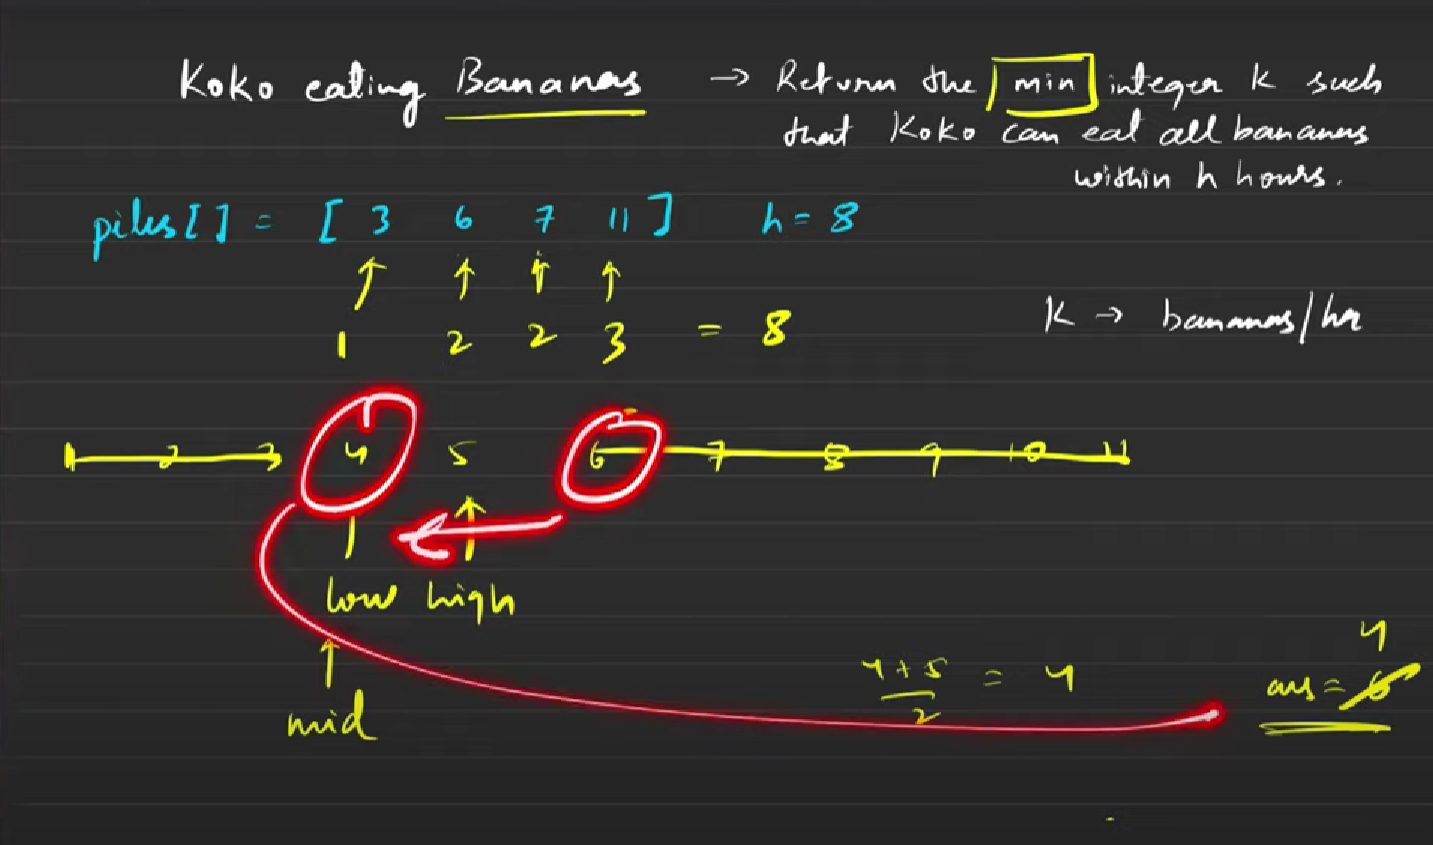 Koko eating Bananas → Return the min integer K such
that Koko can eat all bananas
within h hours.
piles[] = [ 3 6 7 11 ] h = 8
1 2 2 3 = 8
K → bananas/hr
1 2 3 4 5 6 7 8 9 10 11
low high
mid
4+5/2 = 4
4
ans = 6